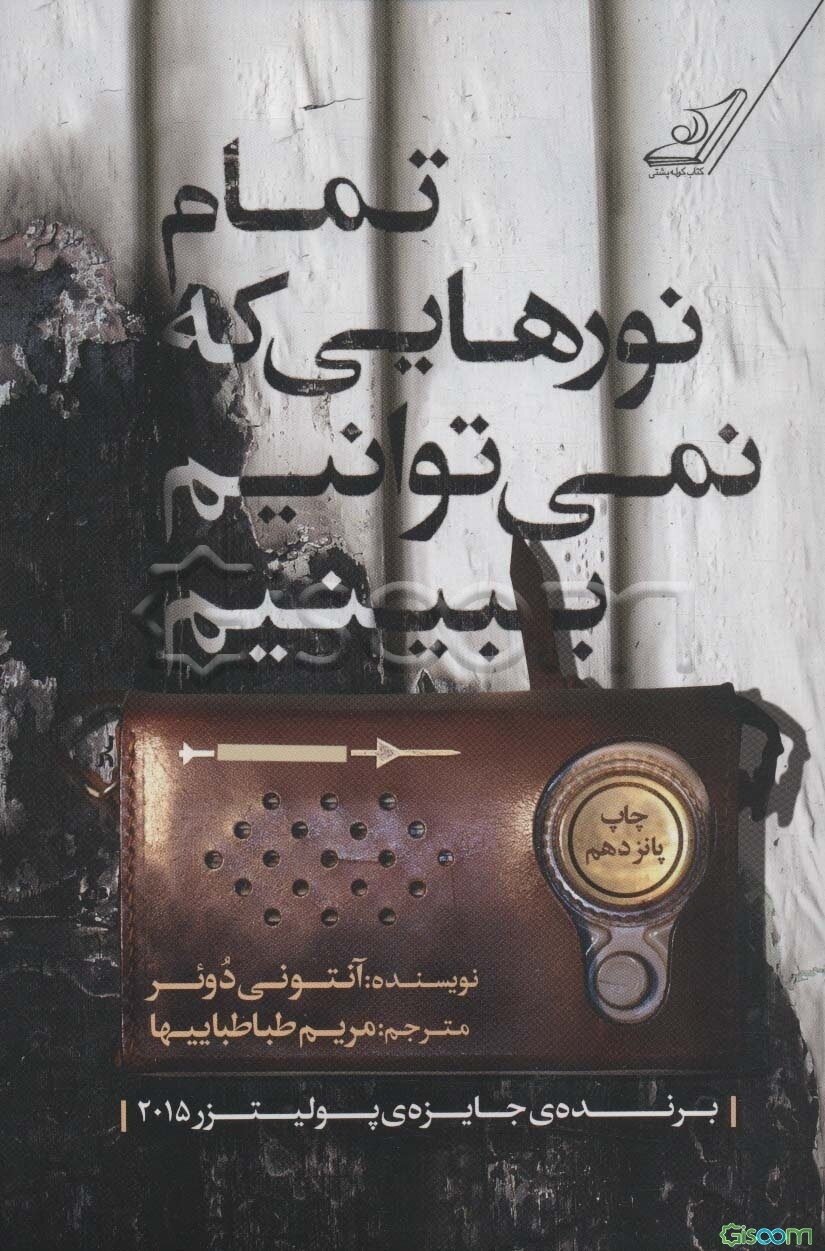 کتاب کوله پشتی
تمام
نورهایی که
نمی توانیم
ببینیم
Giscom
چاپ
پانزدهم
نویسنده: آنتونی دُوئر
مترجم: مریم طباطباییها
برنده‌ی جایزه‌ی پولیتزر ۲۰۱۵
Gisoom